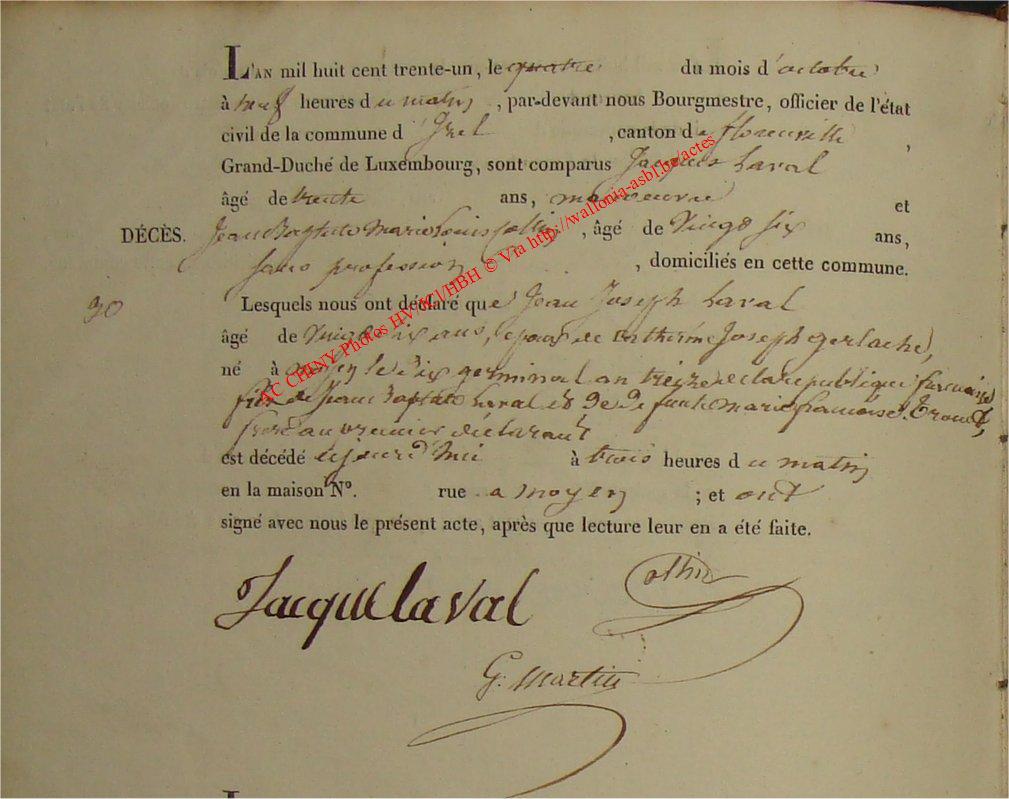 L'AN mil huit cent trente-un, le quatre du mois d'octobre
à neuf heures du matin, par-devant nous Bourgmestre, officier de l'état
civil de la commune d'Izel, canton de florenville,
Grand-Duché de Luxembourg, sont comparus Jacques Laval
âgé de trente ans, manoeuvre et
DÉCÈS. Jean Baptiste Marie Louis Collin, âgé de Vingt six ans,
sans profession, domiciliés en cette commune.
30 Lesquels nous ont déclaré que Jean Joseph Laval
âgé de Vingt six ans, epoux de Catherine Joseph gerlache,
né à moyen le dix germinal an treize de la republique francaise
fils de Jean Baptiste Laval et de defunte marie francoise
frere au premier declarant
est décédé aujourd'hui à trois heures du matin
en la maison N°. rue a moyen ; et ont
signé avec nous le présent acte, après que lecture leur en a été faite.
Jacque laval
Collin
G. Martin
AC CHINY Photos HV/MJ/HBH © Via http://wallonia-asbl.be/actes